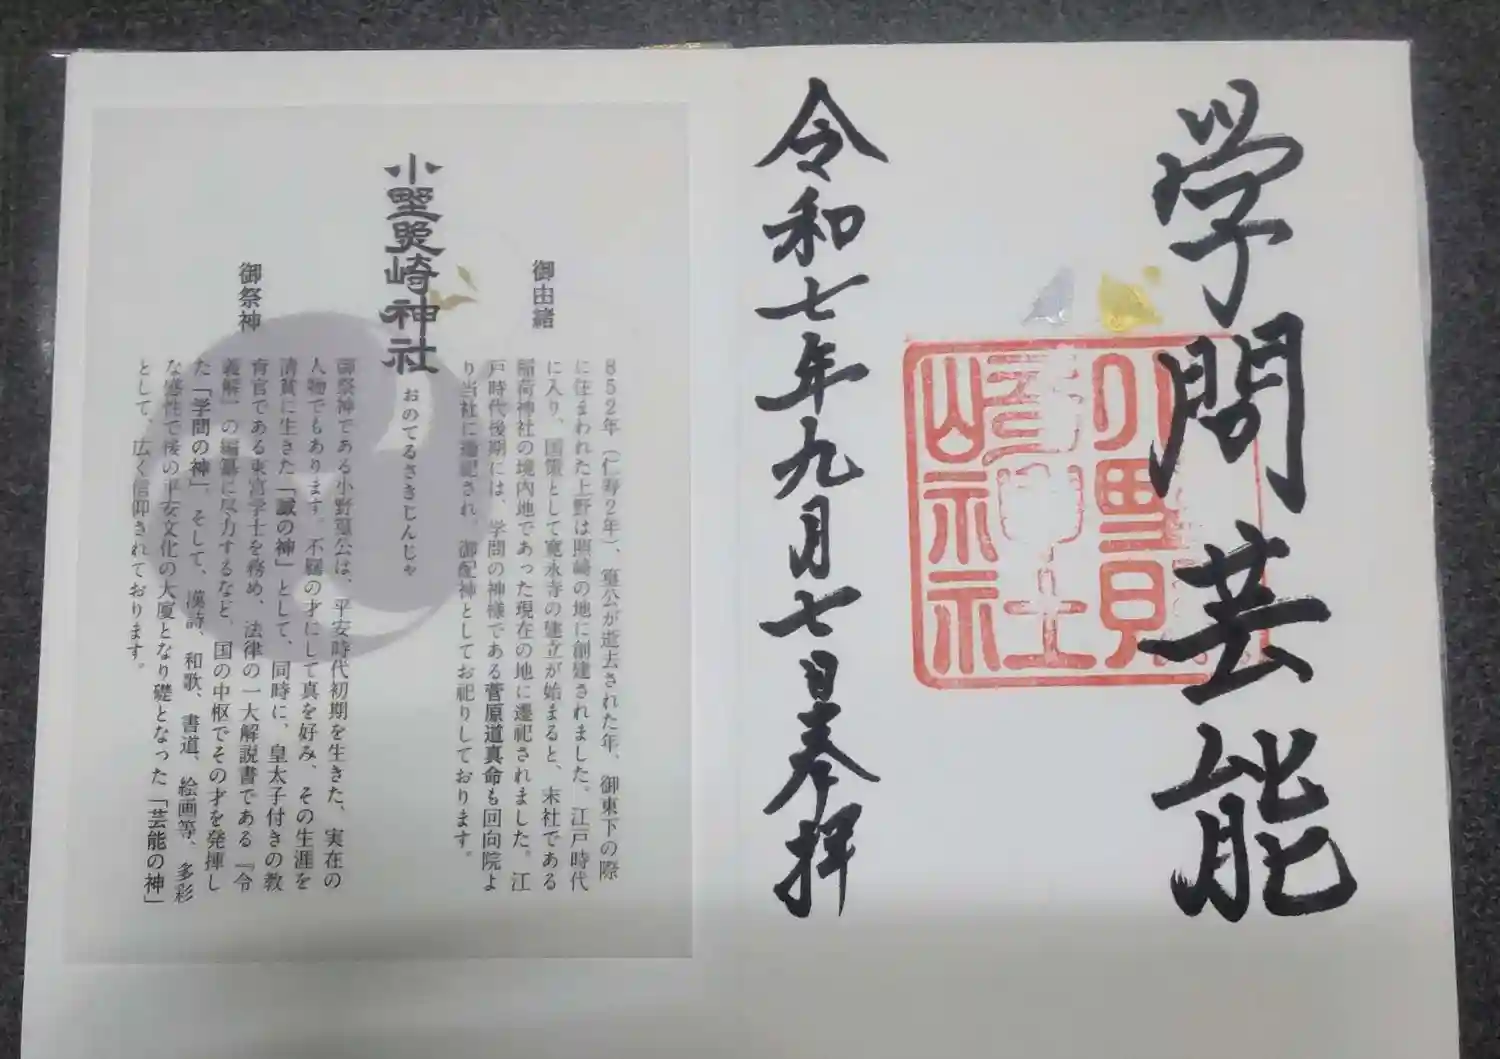 学問芸能
小野照崎神社
令和七年九月七日奉拝
御由緒
852年(仁寿2年)、篁公が逝去された年、御東下の際
に住まわれた上野は照崎の地に創建されました。江戸時代
に入り、国策として寛永寺の建立が始まると、末社である
稲荷神社の境内地であった現在の地に遷祀されました。江
戸時代後期には、学問の神様である菅原道真命も回向院よ
り当社に遷祀され、御配神としてお祀りしております。
小野照崎神社
おのてるさきじんじゃ
御祭神
御祭神である小野篁公は、平安時代初期を生きた、実在の
人物でもあります。不羈の才にして真を好み、その生涯を
清貧に生きた「誠の神」として、同時に、皇太子付きの教
育官である東宮学士を務め、法律の一大解説書である『令
義解』の編纂に尽力するなど、国の中枢でその才を発揮し
た「学問の神」。そして、漢詩、和歌、書道、絵画等、多彩
な感性で後の平安文化の大廈となり礎となった「芸能の神」
として、広く信仰されております。